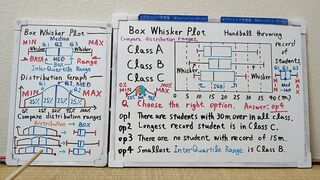 Box Whisker Plot
Median
Q1 Q2 Q3
MIN MAX
Whisker Whisker
DATA MED Range
InterQuartile Range
Distribution Graph
MIN Q1 Q2 Q3 MAX
25% 25% 25% 25%
Compare distribution ranges
Distribution → Box
Box Whisker Plot Handball throwing
Compare distribution ranges record of students
Class A
Class B
Class C
Whisker Whisker
MAX
Q3
Q2
Q1
MIN
0% 100%
25% 25%
0 5 10 15 20 25 30 35 40 (m)
Q Choose the right option. Answer: op4
op1 There are students with 30m over in all class.
op2 Longest record student is in Class C.
op3 There are no student with record of 15m.
op4 Smallest InterQuartile Range is Class B.